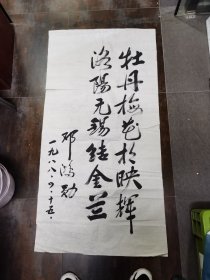 牡丹梅花於映輝
洛陽无锡结金兰
邓鸿勋
一九八八.四.十五.